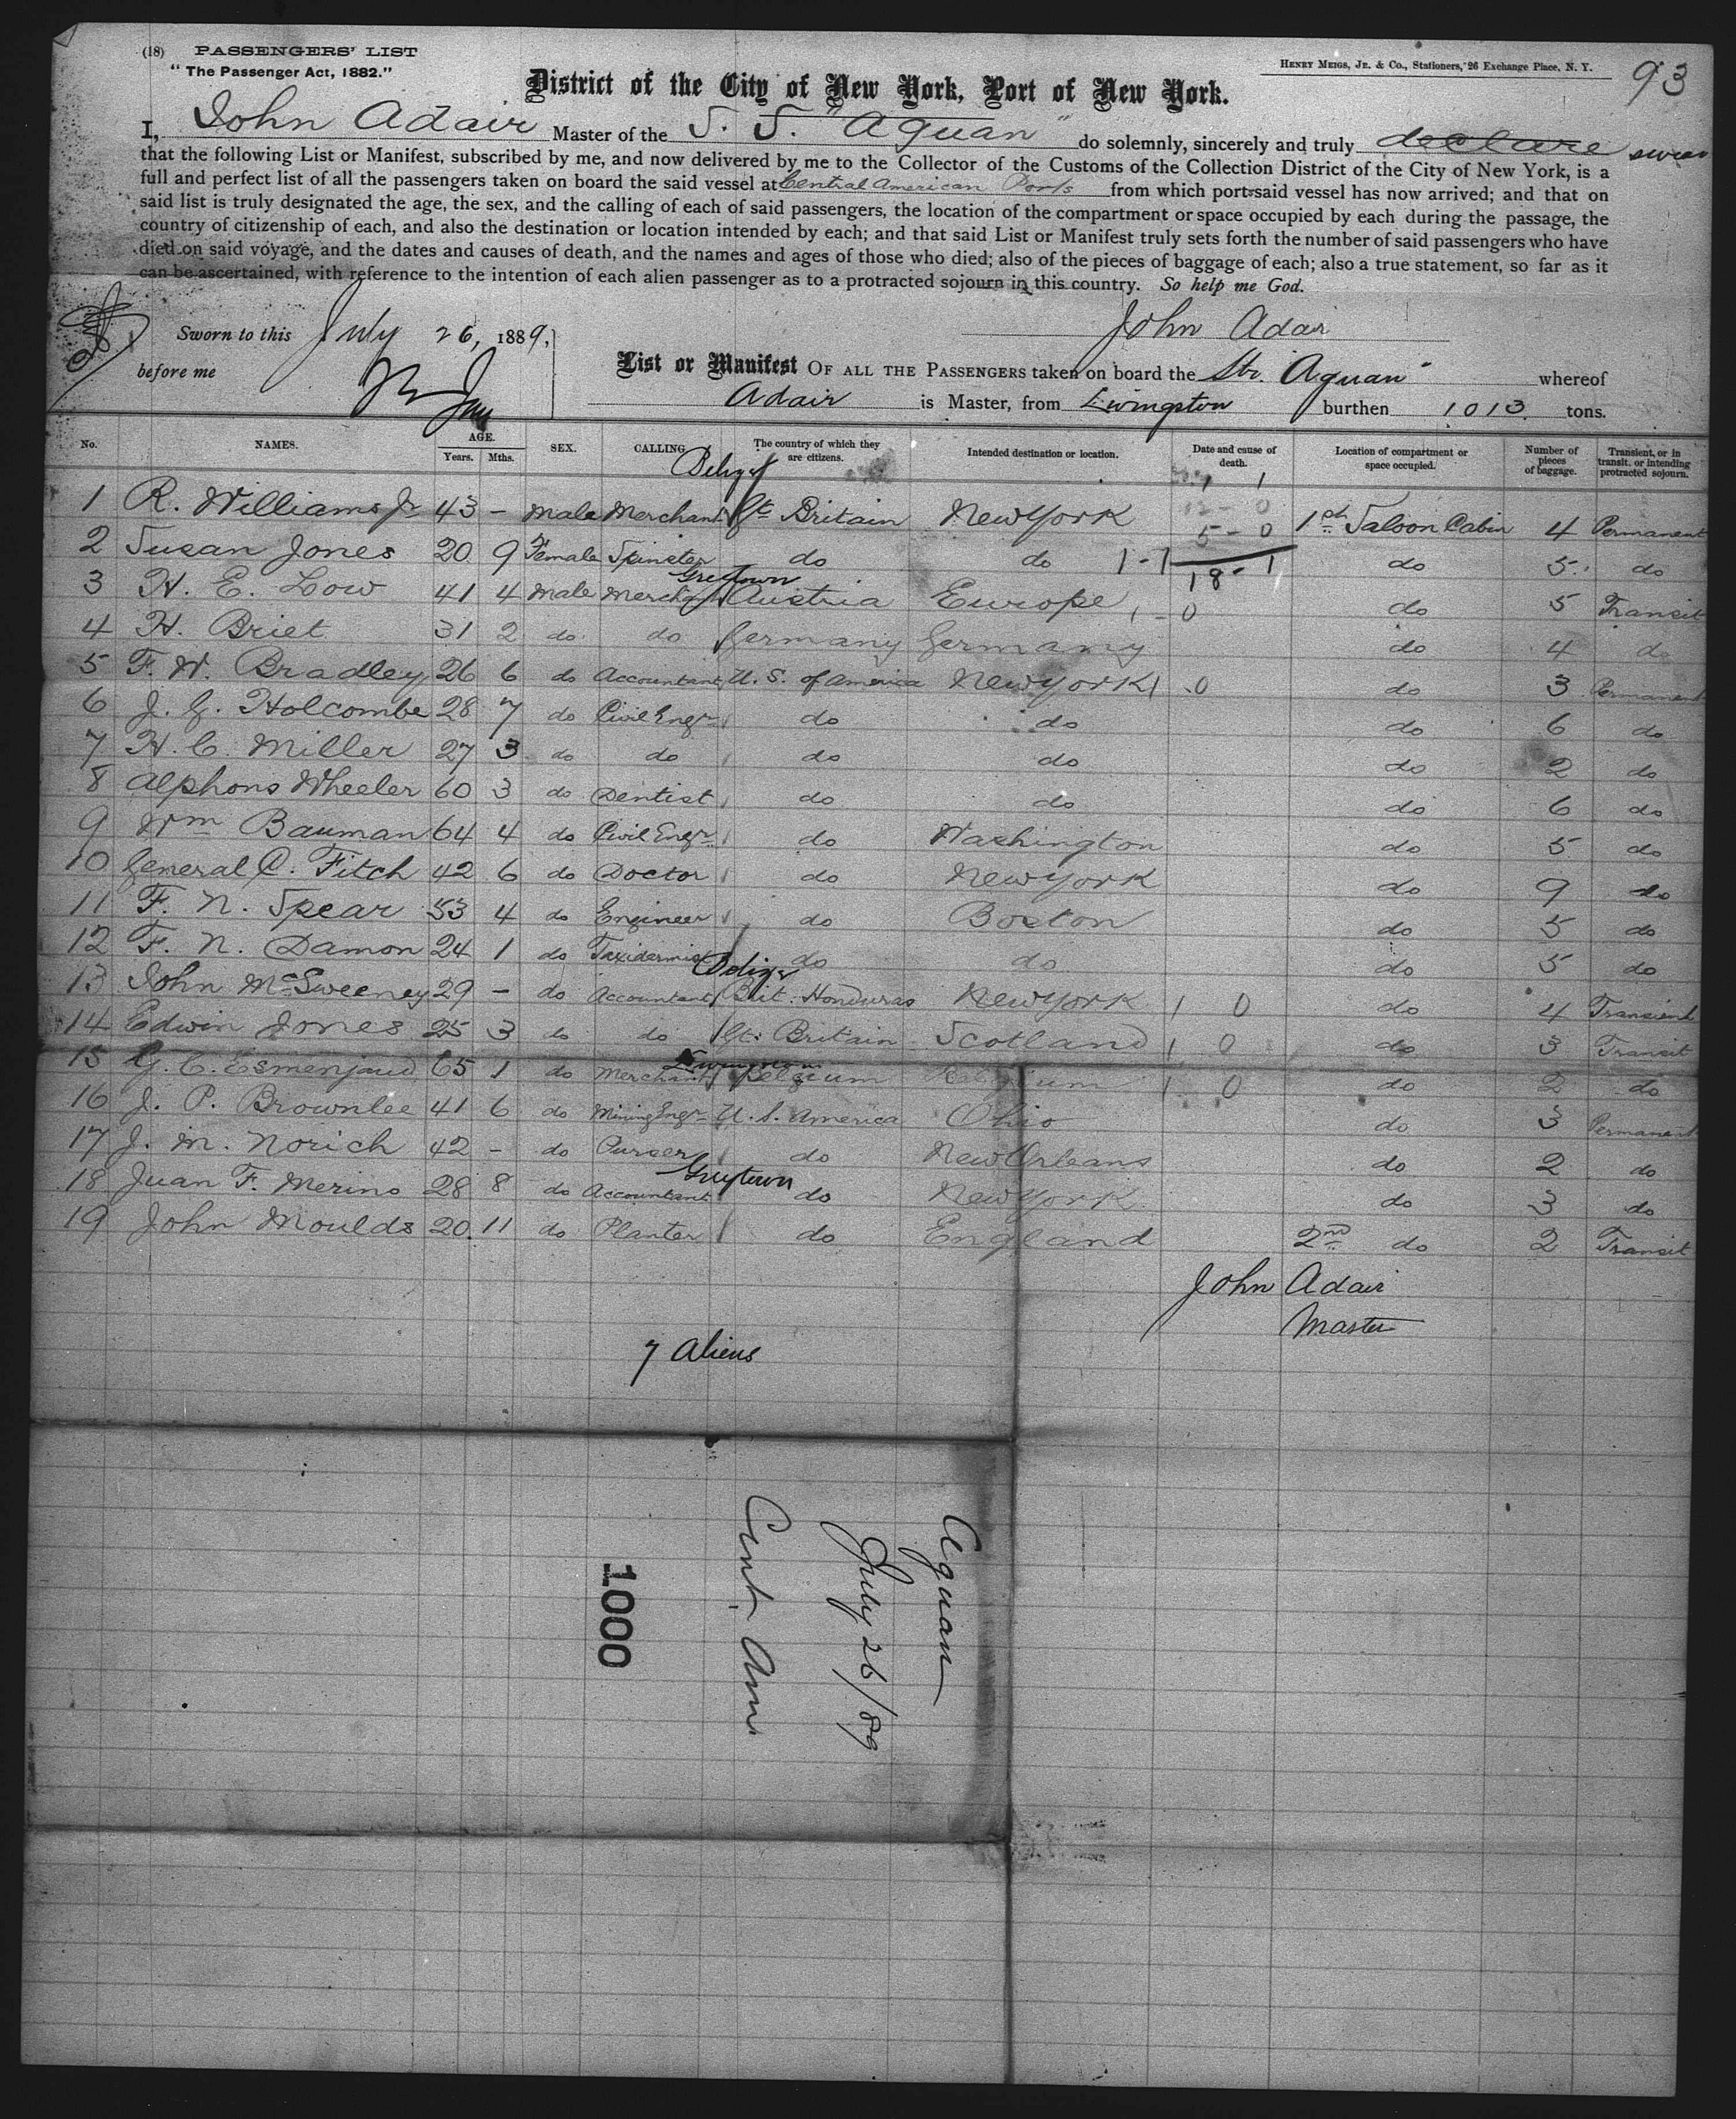 (18) PASSENGERS' LIST
"The Passenger Act, 1882."
HENRY MEIGS, JR. & CO., Stationers, 26 Exchange Place, N. Y.
93
District of the City of New York, Port of New York.
I, John Adair Master of the S. S. "Aguan" do solemnly, sincerely and truly declare swear
that the following List or Manifest, subscribed by me, and now delivered by me to the Collector of the Customs of the Collection District of the City of New York, is a
full and perfect list of all the passengers taken on board the said vessel at Central American Ports from which port said vessel has now arrived; and that on
said list is truly designated the age, the sex, and the calling of each of said passengers, the location of the compartment or space occupied by each during the passage, the
country of citizenship of each, and also the destination or location intended by each; and that said List or Manifest truly sets forth the number of said passengers who have
died on said voyage, and the dates and causes of death, and the names and ages of those who died; also of the pieces of baggage of each; also a true statement, so far as it
can be ascertained, with reference to the intention of each alien passenger as to a protracted sojourn in this country. So help me God.
Sworn to this July 26, 1889,
John Adair
before me
List or Manifest OF ALL THE PASSENGERS taken on board the Str. Aguan" whereof
Adair is Master, from Livingston burthen 1013 tons.
No. NAMES. AGE. Years. Mths. SEX. CALLING. The country of which they are citizens. Intended destination or location. Date and cause of death. Location of compartment or space occupied. Number of pieces of baggage. Transient, or in transit, or intending protracted sojourn.
Belize
1 1
12 - 0
1 R. Williams Jr 43 - Male Merchant Gt. Britain New York 5 - 0 1st Saloon Cabin 4 Permanent
2 Susan Jones 20 9 Female Spinster do do 1 - 1 18 - 1 do 5 do
Greytown
3 H. E. Low 41 4 Male Merchant Austria Europe 1 - 0 do 5 Transit
4 H. Briet 31 2 do do Germany Germany do 4 do
5 F. W. Bradley 26 6 do Accountant U. S. of America New York 1 .0 do 3 Permanent
6 J. G. Holcombe 28 7 do Civil Engr do do do 6 do
7 H. C. Miller 27 3 do do do do do 2 do
8 Alphons Wheeler 60 3 do Dentist do do do 6 do
9 Wm Bauman 64 4 do Civil Engr do Washington do 5 do
10 General C. Fitch 42 6 do Doctor do New York do 9 do
11 F. N. Spear 53 4 do Engineer do Boston do 5 do
12 F. N. Damon 24 1 do Taxidermist do do do 5 do
Belize
13 John McSweeney 29 - do Accountant Brit. Honduras New York 1 0 do 4 Transient
14 Edwin Jones 25 3 do do Gt. Britain Scotland 1 0 do 3 Transit
Livingston
15 G. C. Esmenjaud 65 1 do Merchant Belgium Belgium 1 0 do 2 do
16 J. P. Brownlee 41 6 do Mining Engr U. S. America Ohio do 3 Permanent
17 J. M. Norich 42 - do Purser do New Orleans do 2 do
Greytown
18 Juan F. Merino 28 8 do Accountant do New York do 3 do
19 John Moulds 20 11 do Planter do England 2nd do 2 Transit
John Adair
Master
7 Aliens
Aguan
July 26/89
Cent. Am
1000